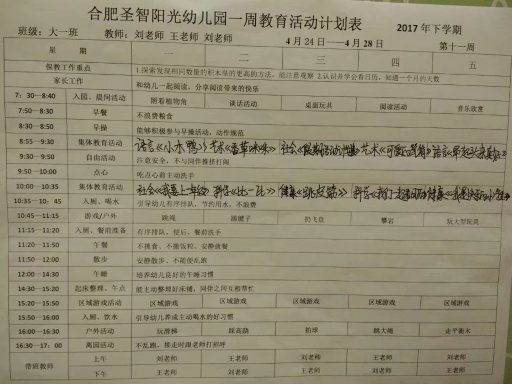 合肥圣智阳光幼儿园一周教育活动计划表
2017 年下学期
班级：大一班 教师：刘老师 王老师 刘老师 4 月 24 日——4 月 28 日 第十一周
星 期 一 二 三 四 五
保教工作重点 1.探索发现相同数量的积木垒的更高的方法，能注意观察 2.认识并学会看日历，知道一个月的天数
家长工作 和幼儿一起阅读，分享阅读带来的快乐
7：30—8:40 入园、晨间活动 图看植物角 谈话活动 桌面玩具 阅读活动 音乐欣赏
7:50—8:30 早餐 不浪费粮食
8:30—8:50 早操 能够积极参与早操活动，动作规范
8:55—9:30 集体教育活动 语言《小水鸭》 艺术 社会 艺术 语言
9:30—9:50 自由活动 注意安全，不与同伴推挤打闹
9:50—10:00 点心 吃点心前主动洗手
10:00—10:35 集体教育活动 社会《我要上学啦》 科学《比一比》 健康
10:35—10：45 入厕、喝水 引导幼儿有序排队，节约用水，不浪费
10:45—11:15 游戏/户外 跳绳 踢毽子 扔飞盘 攀岩 玩大型玩具
11:15—11:20 入厕、餐前准备 有序排队，便后、餐前洗手
11:20—11:50 午餐 不挑食、不撒饭粒、安静就餐
11:50—12:00 散步 安静散步、不能使乱跑
12:00—14:30 午睡 培养幼儿良好的午睡习惯
14:30—15:20 起床整理、午点 能主动整理好床铺，同伴之间互相帮忙
15:20—15:50 区域游戏活动 区域游戏 区域游戏 区域游戏 区域游戏 区域游戏
15:50—16:00 入厕、饮水 引导幼儿养成主动喝水的好习惯
16:00—16:30 户外活动 玩滑梯 踩高跷 拍球 跳大绳 走平衡木
16:30—17：00 离园活动 不乱跑，接走时跟老师打招呼
带班教师 上午 刘老师 王老师 刘老师 王老师 刘老师
下午 王老师 刘老师 王老师 刘老师 王老师